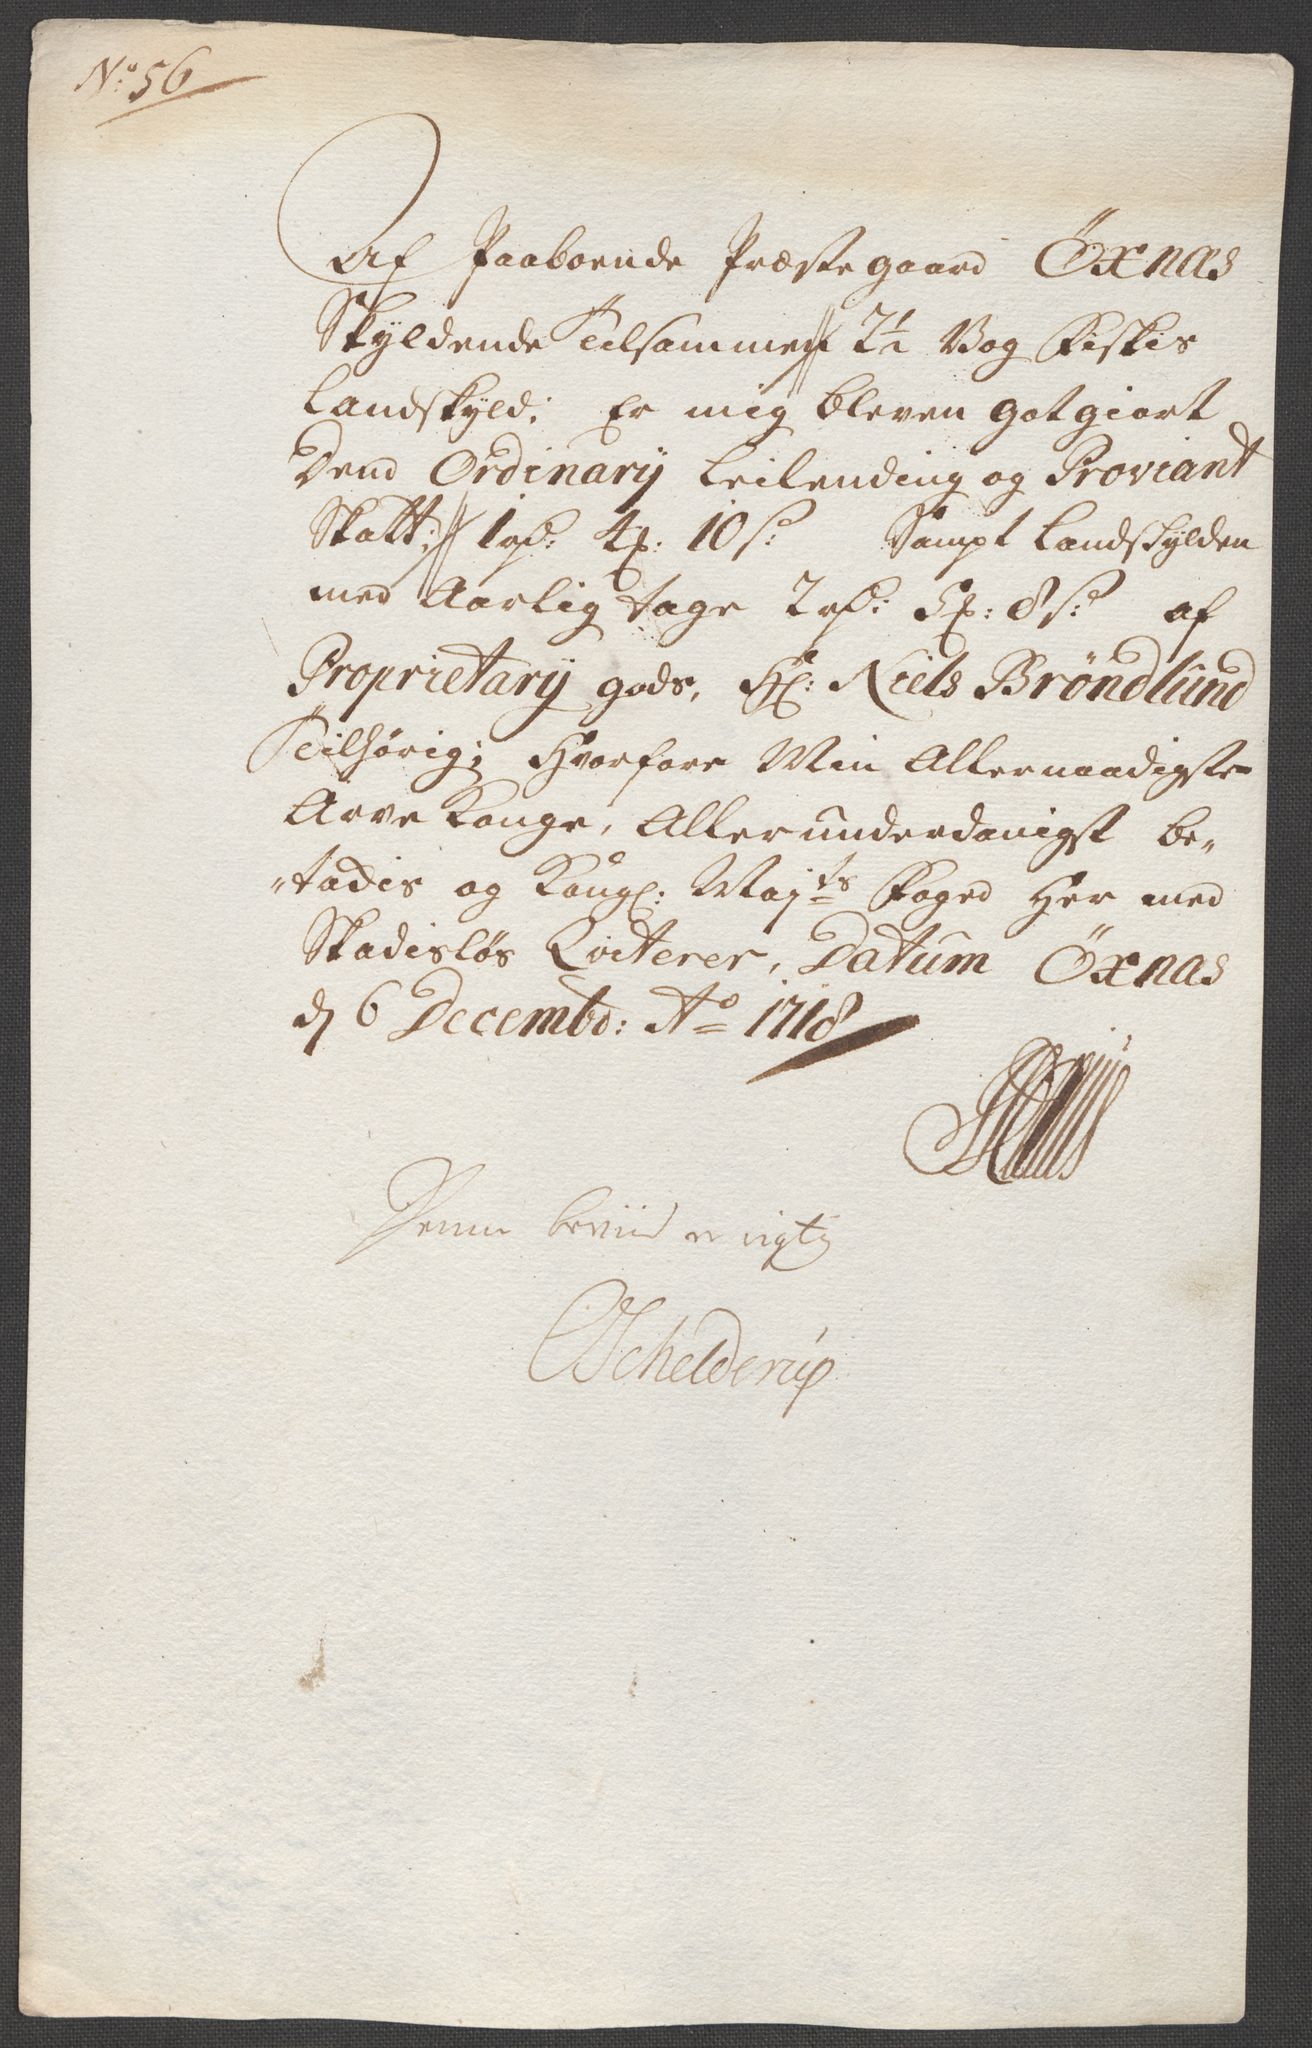 No: 56
Af Paaboende Præstegaard Öxnas
Skyldende Tilsammen 2½ Vog Fiskis
Landskyld; Er mig bleven gotgiort
Dend Ordinarÿ Leilending og Proviant
Skatt; 1 rd: 4 ℔: 10 s: Sampt Landskylden
med Aarlig tage 2 rd: 5 ℔: 8 s: af
Proprietarÿ gods, Hr: Niels Bröndlund
Tilhörig; Hvorfore Min Allernaadigste
Arve Konge, Allerunderdanigst be„
„tackis og Kongl: Majts Foged Her med
Skadislös Qviterer, Datum Öxnas
d 6 Decembr: Ao 1718
Denne beviis er rigtig
Schelderup